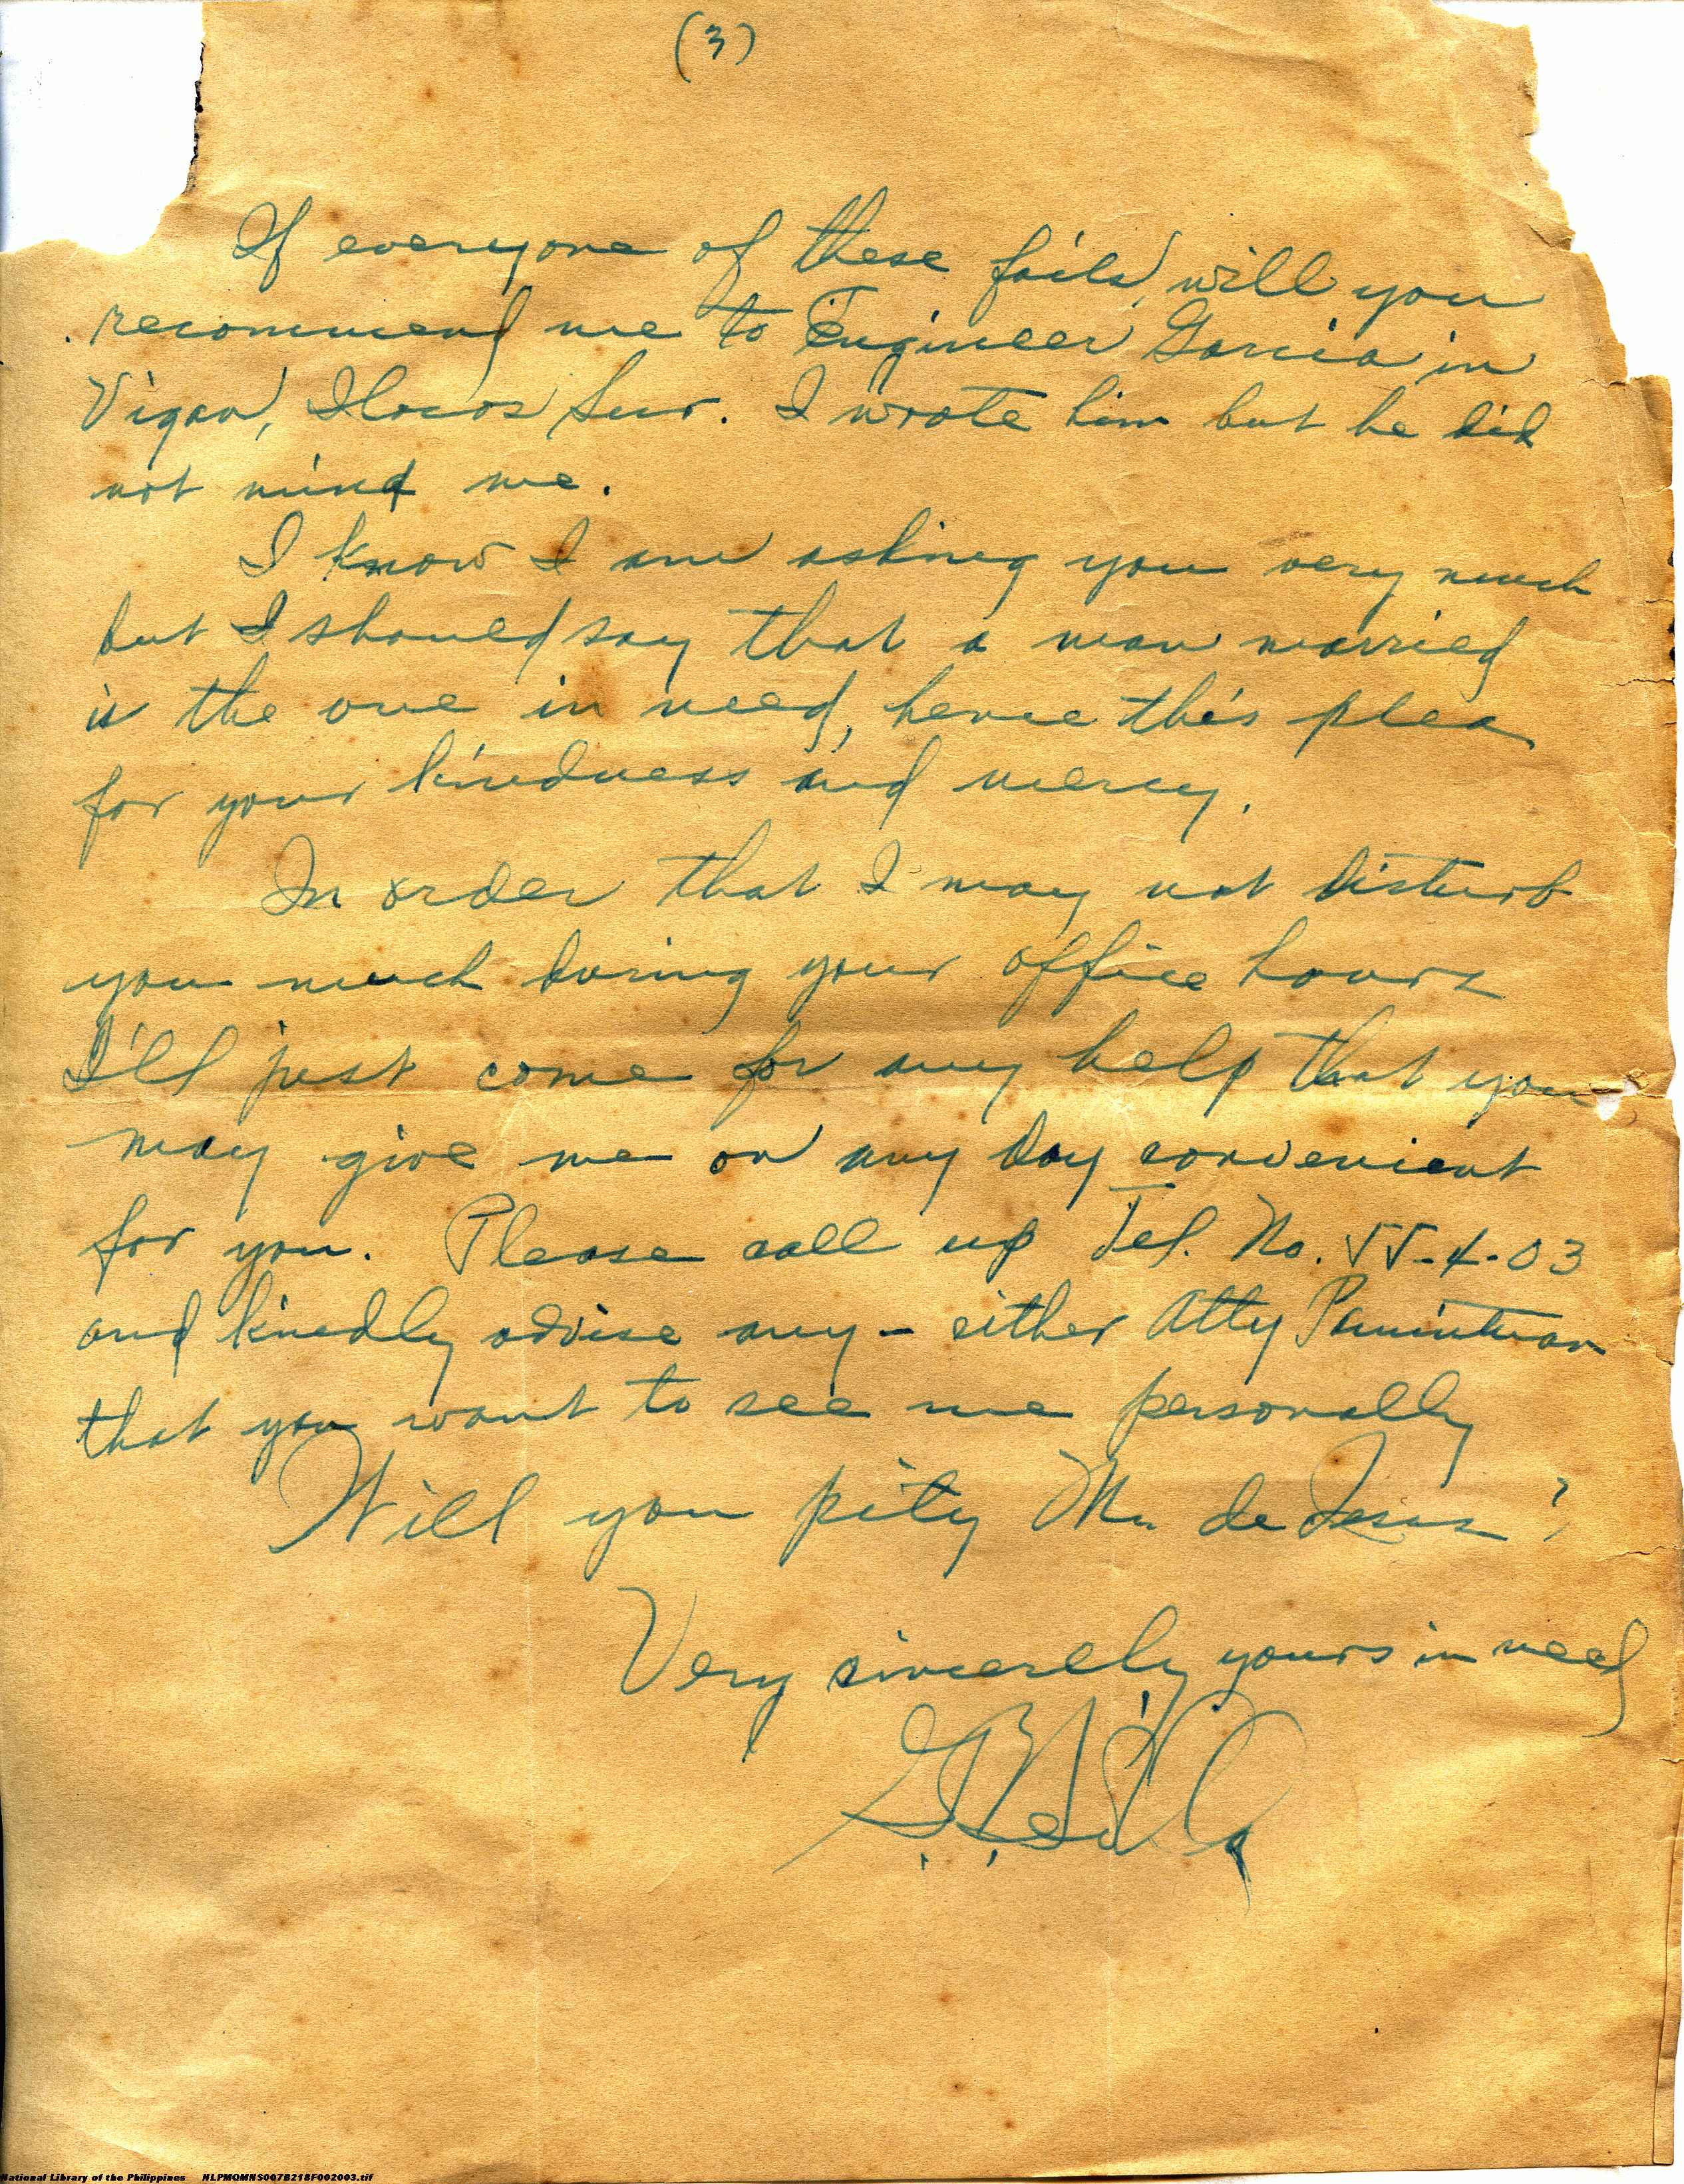 (3)
If everyone of these fails, will you
recommend me to Engineer Garcia in
Vigan, Ilocos Sur. I wrote him but he did
not mind me.
I know I am asking you very much
but I should say that a man married
is the one in need, hence this plea
for your kindness and mercy.
In order that I may not disturb
you much during your office hours
I'll just come for any help that you
may give me on any day convenient
for you. Please call up Tel. No. 55-4-03
and kindly advise any - either Atty Pamintuan
that you want to see me personally
Will you pity Mr. de Jesus?
Very sincerely yours in need
National Library of the Philippines NLPMQMNS007B218F002003.tif